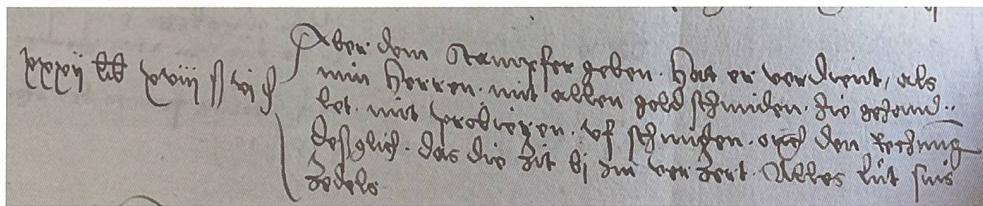 xxxii lib xviii ß vi d Aber dem Stampfer geben. hat er verdient, als
min herren. mit allen goldschmiden. die gehand..
let. mit probieren. uf schniden. ouch den rechnung
desglich. das die zit bi im verzert. Alles lut sins
zedels